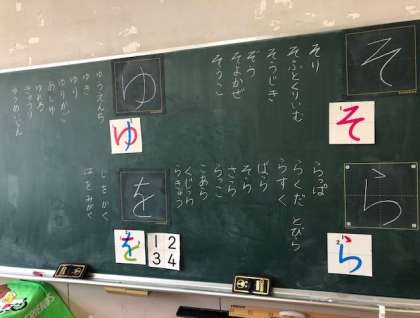 そ
そ
そり
そふとくりいむ
そうじき
ぞう
そよかぜ
そうこ
ゆ
ゆ
ゆうえんち
ゆき
ゆり
ゆりかご
きゅうり
ゆれる
ら
ら
らっぱ
らくだ とびら
らすく
ばら
そら
さら
らっこ
こあら
くじら
らきゅう
を
を
1 2
3 4
じをかく
はをみがく